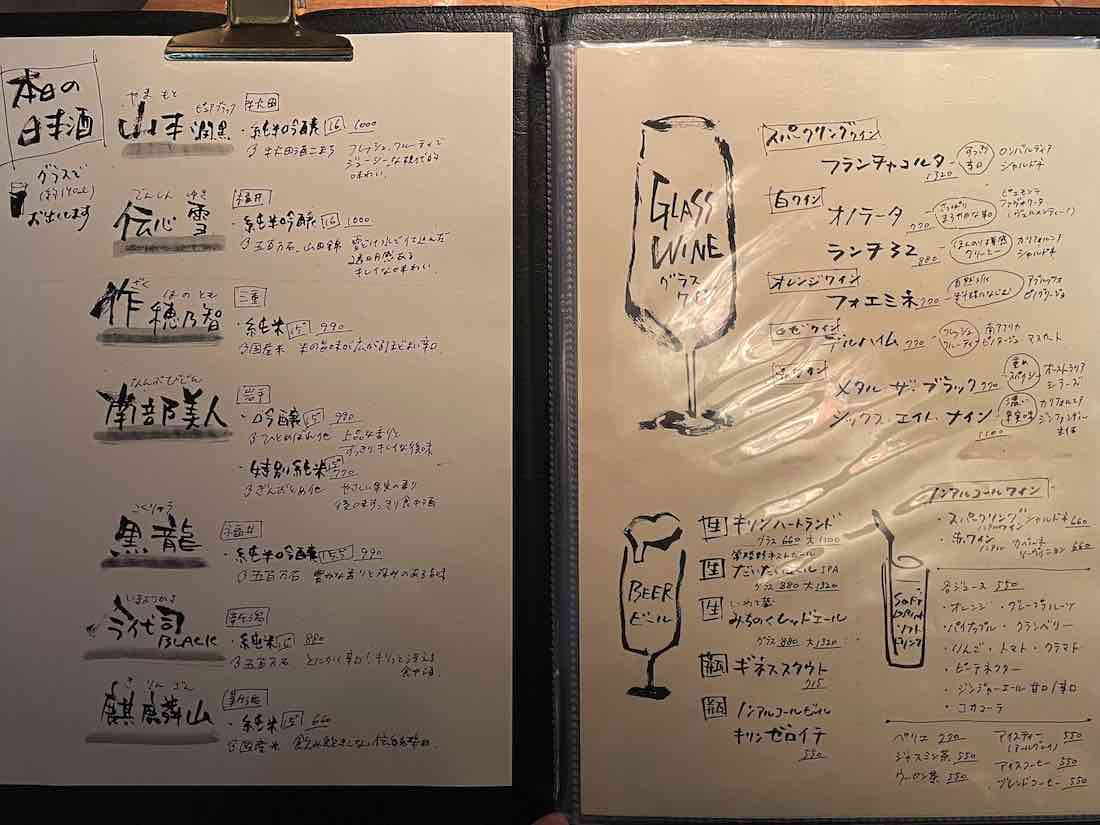 本日の
日本酒
グラスで
お出しします
やま もと
ピュアブラック
山本 潤黒
秋田
・純米吟醸 16 1000
秋田酒こまち フレッシュ、フルーティで
ジューシーな現代的
味わい
でんしん ゆき
伝心 雪
福井
・純米吟醸 16 1000
五百万石、山田錦 雪どけ水で仕込んだ
透明感ある
キレイな味わい
ざく ほのとも
作 穂乃智
三重
・純米 15 990
国産米 米の旨味が広がるほどよい辛口
なんぶびじん
南部美人
岩手
・吟醸 15 990
ひとめぼれ他 上品な香りと
すっきりキレイな後味
・特別純米 770
ぎんおとめ他 やさしい果実の香り
後味すっきり食中酒
こくりゅう
黒龍
福井
・純米吟醸 15.5 990
五百万石 豊かな香りと深みのある味
いまよつかさ
今代司
BLACK
新潟
・純米 880
五百万石 とにかく辛口!キリッと冴える
食中酒
き りん ざん
麒麟山
新潟
・純米 15 660
国産米 飲み飽きしない伝統辛口
GLASS
WINE
グラス
ワイン
スパークリングワイン
フランチャコルタ 1320
すっきり
辛口
ロンバルディア
シャルドネ
白ワイン
オノラータ 770
さっぱり
まろやかな辛口
ピエモンテ
ファヴォリータ
(ヴェルメンティーノ)
ランチ32 880
ほんのり樽感
クリーミー
カリフォルニア
シャルドネ
オレンジワイン
フォエミネ 770
アブルッツォ
ピノグリージョ
ロゼワイン
デルハイム 770
フレッシュ
フルーティ
南アフリカ
ピノタージュ マスカット
赤ワイン
メタル ザ・ブラック 770
重め
スパイシー
オーストラリア
シラーズ
シックス・エイト・ナイン 1100
濃い
果実味
カリフォルニア
ジンファンデル
主体
BEER
ビール
生 キリンハートランド
グラス 660 大1100
常陸野ネストビール
生 だいだいエール IPA
グラス 880 大1320
いわて蔵
生 みちのくレッドエール
グラス 880 大1320
瓶 ギネススタウト
715
瓶 ノンアルコールビール
キリンゼロイチ
550
SOFT
DRINK
ソフト
ドリンク
ノンアルコールワイン
・スパークリング シャルドネ 660
・赤ワイン カベルネ
ソーヴィニヨン 660
各ジュース 550
・オレンジ ・グレープフルーツ
・パイナップル ・クランベリー
・りんご ・トマト ・クラマト
・ピーチネクター
・ジンジャーエール 甘口/辛口
・コカコーラ
ペリエ
ジャスミン茶 550
ウーロン茶 550
アイスティー 550
(アールグレイ)
アイスコーヒー 550
ブレンドコーヒー 550